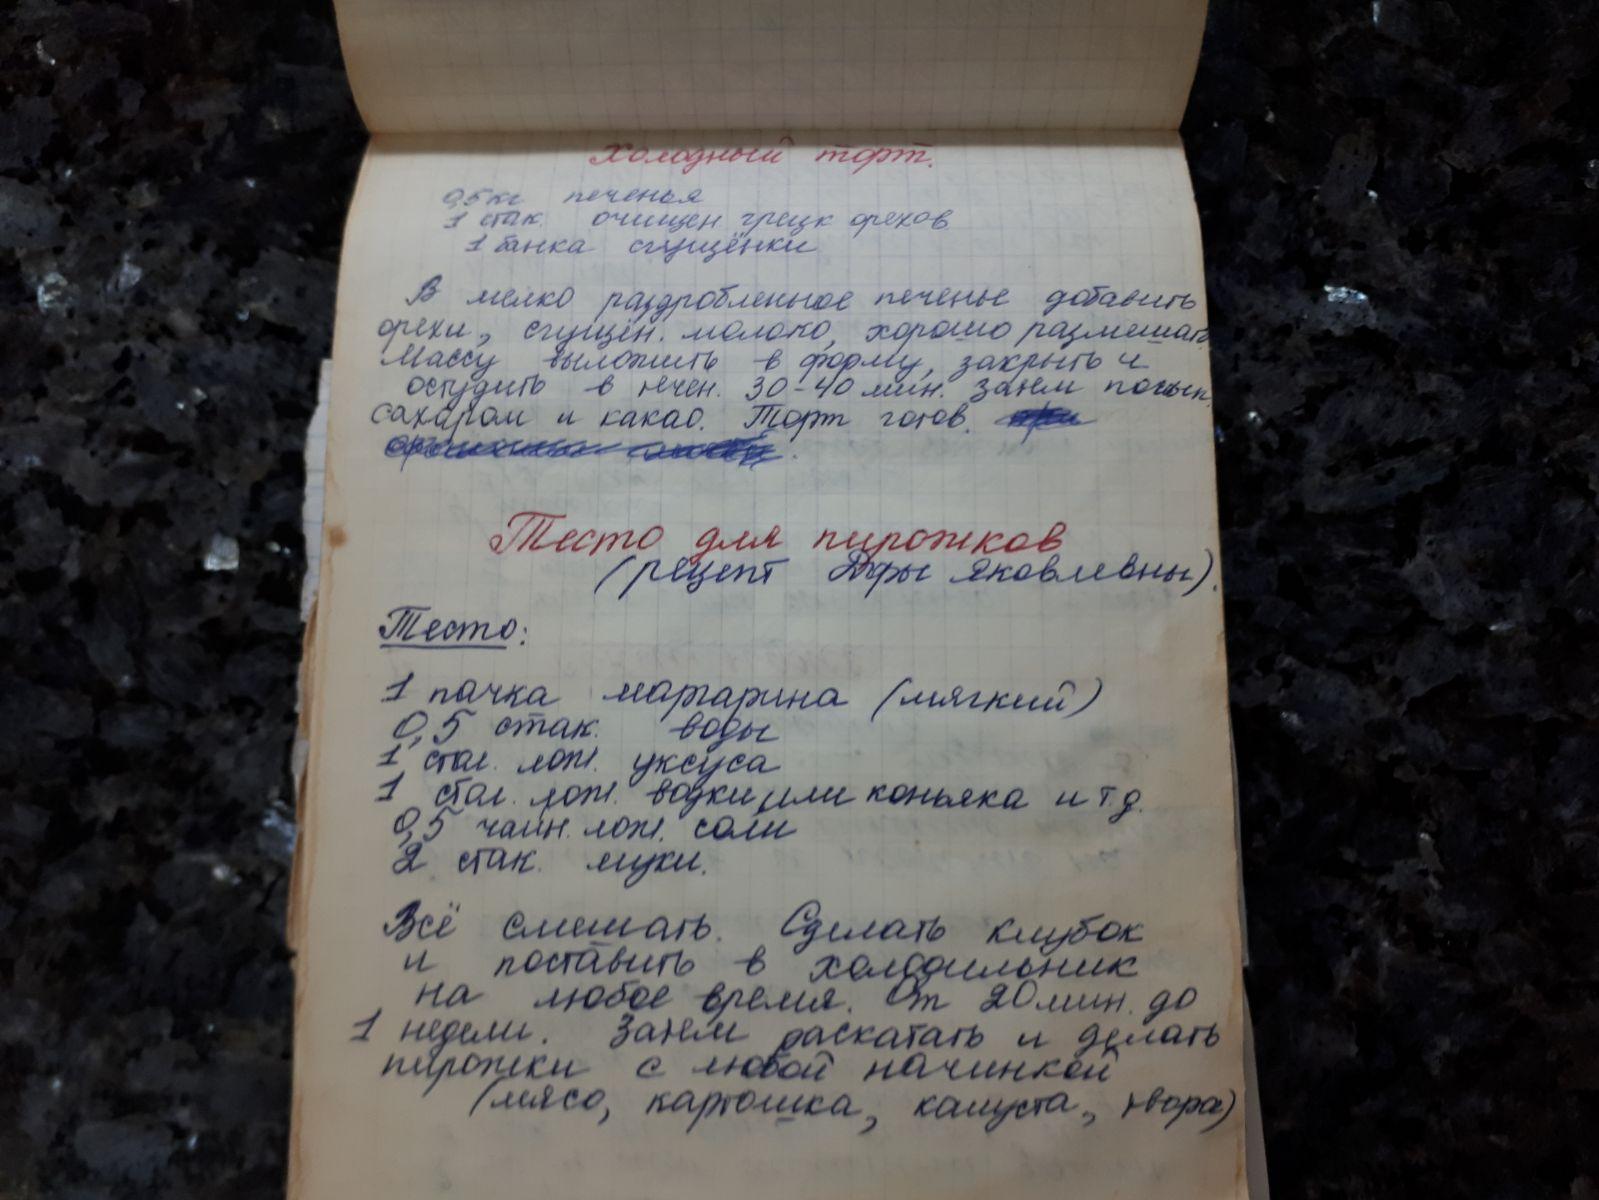 Холодный торт.
0,5кг печенья
1 стак. очищен грецк орехов
1 банка сгущёнки
В мелко раздробленное печенье добавить
орехи, сгущён. молоко, хорошо размешать.
Массу выложить в форму, закрыть и
остудить в течен. 30-40 мин. Затем посып.
сахаром и какао. Торт готов.
Тесто для пирожков
(рецепт Доры Яковлевны).
Тесто:
1 пачка маргарина (мягкий)
0,5 стак. воды
1 стол. лож. уксуса
1 стол. лож. водки, или коньяка и т.д.
0,5 чайн. лож. соли
2 стак. муки.
Всё смешать. Сделать клубок
и поставить в холодильник
на любое время. От 20 мин. до
1 недели. Затем раскатать и делать
пирожки с любой начинкой
(мясо, картошка, капуста, творог)